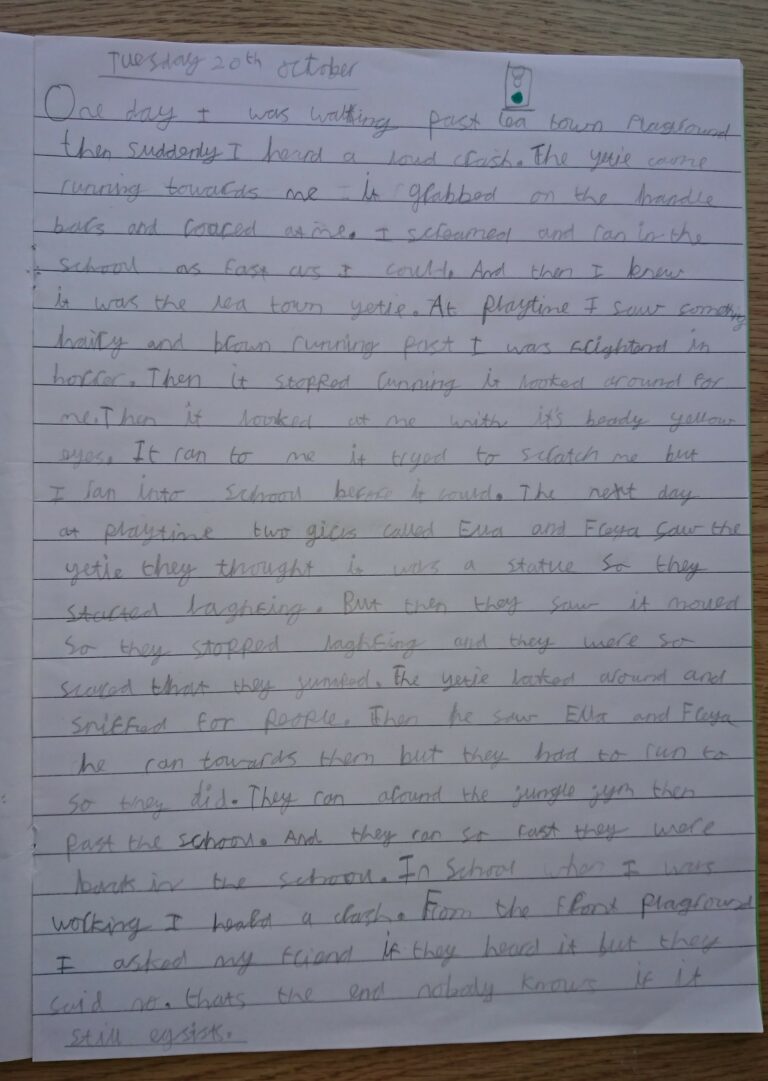 Tuesday 20th October
One day I was walking past Lea town Plaground
then suddenly I heard a loud crash. The yetie came
running towards me it grabbed on the handle
bars and roared at me. I screamed and ran in the
school as fast as I could. And then I knew
it was the lea town yetie. At playtime I saw something
hairy and brown running past I was frightend in
horror. Then it stopped running it looked around for
me. Then it looked at me with it's beady yellow
eyes. It ran to me it tryed to scratch me but
I ran into school before it could. The next day
at playtime two girls called Ella and Freya saw the
yetie they thought it was a statue so they
started laghfing. But then they saw it moved
so they stopped laghfing and they were so
scared that they jumped. The yetie looked around and
sniffed for people. Then he saw Ella and Freya
he ran towards them but they had to run to
so they did. They ran around the jungle gym then
past the school. And they ran so fast they were
back in the school. In school when I was
working I heard a crash. From the front plaground
I asked my friend if they heard it but they
said no. thats the end nobody knows if it
still egsists.